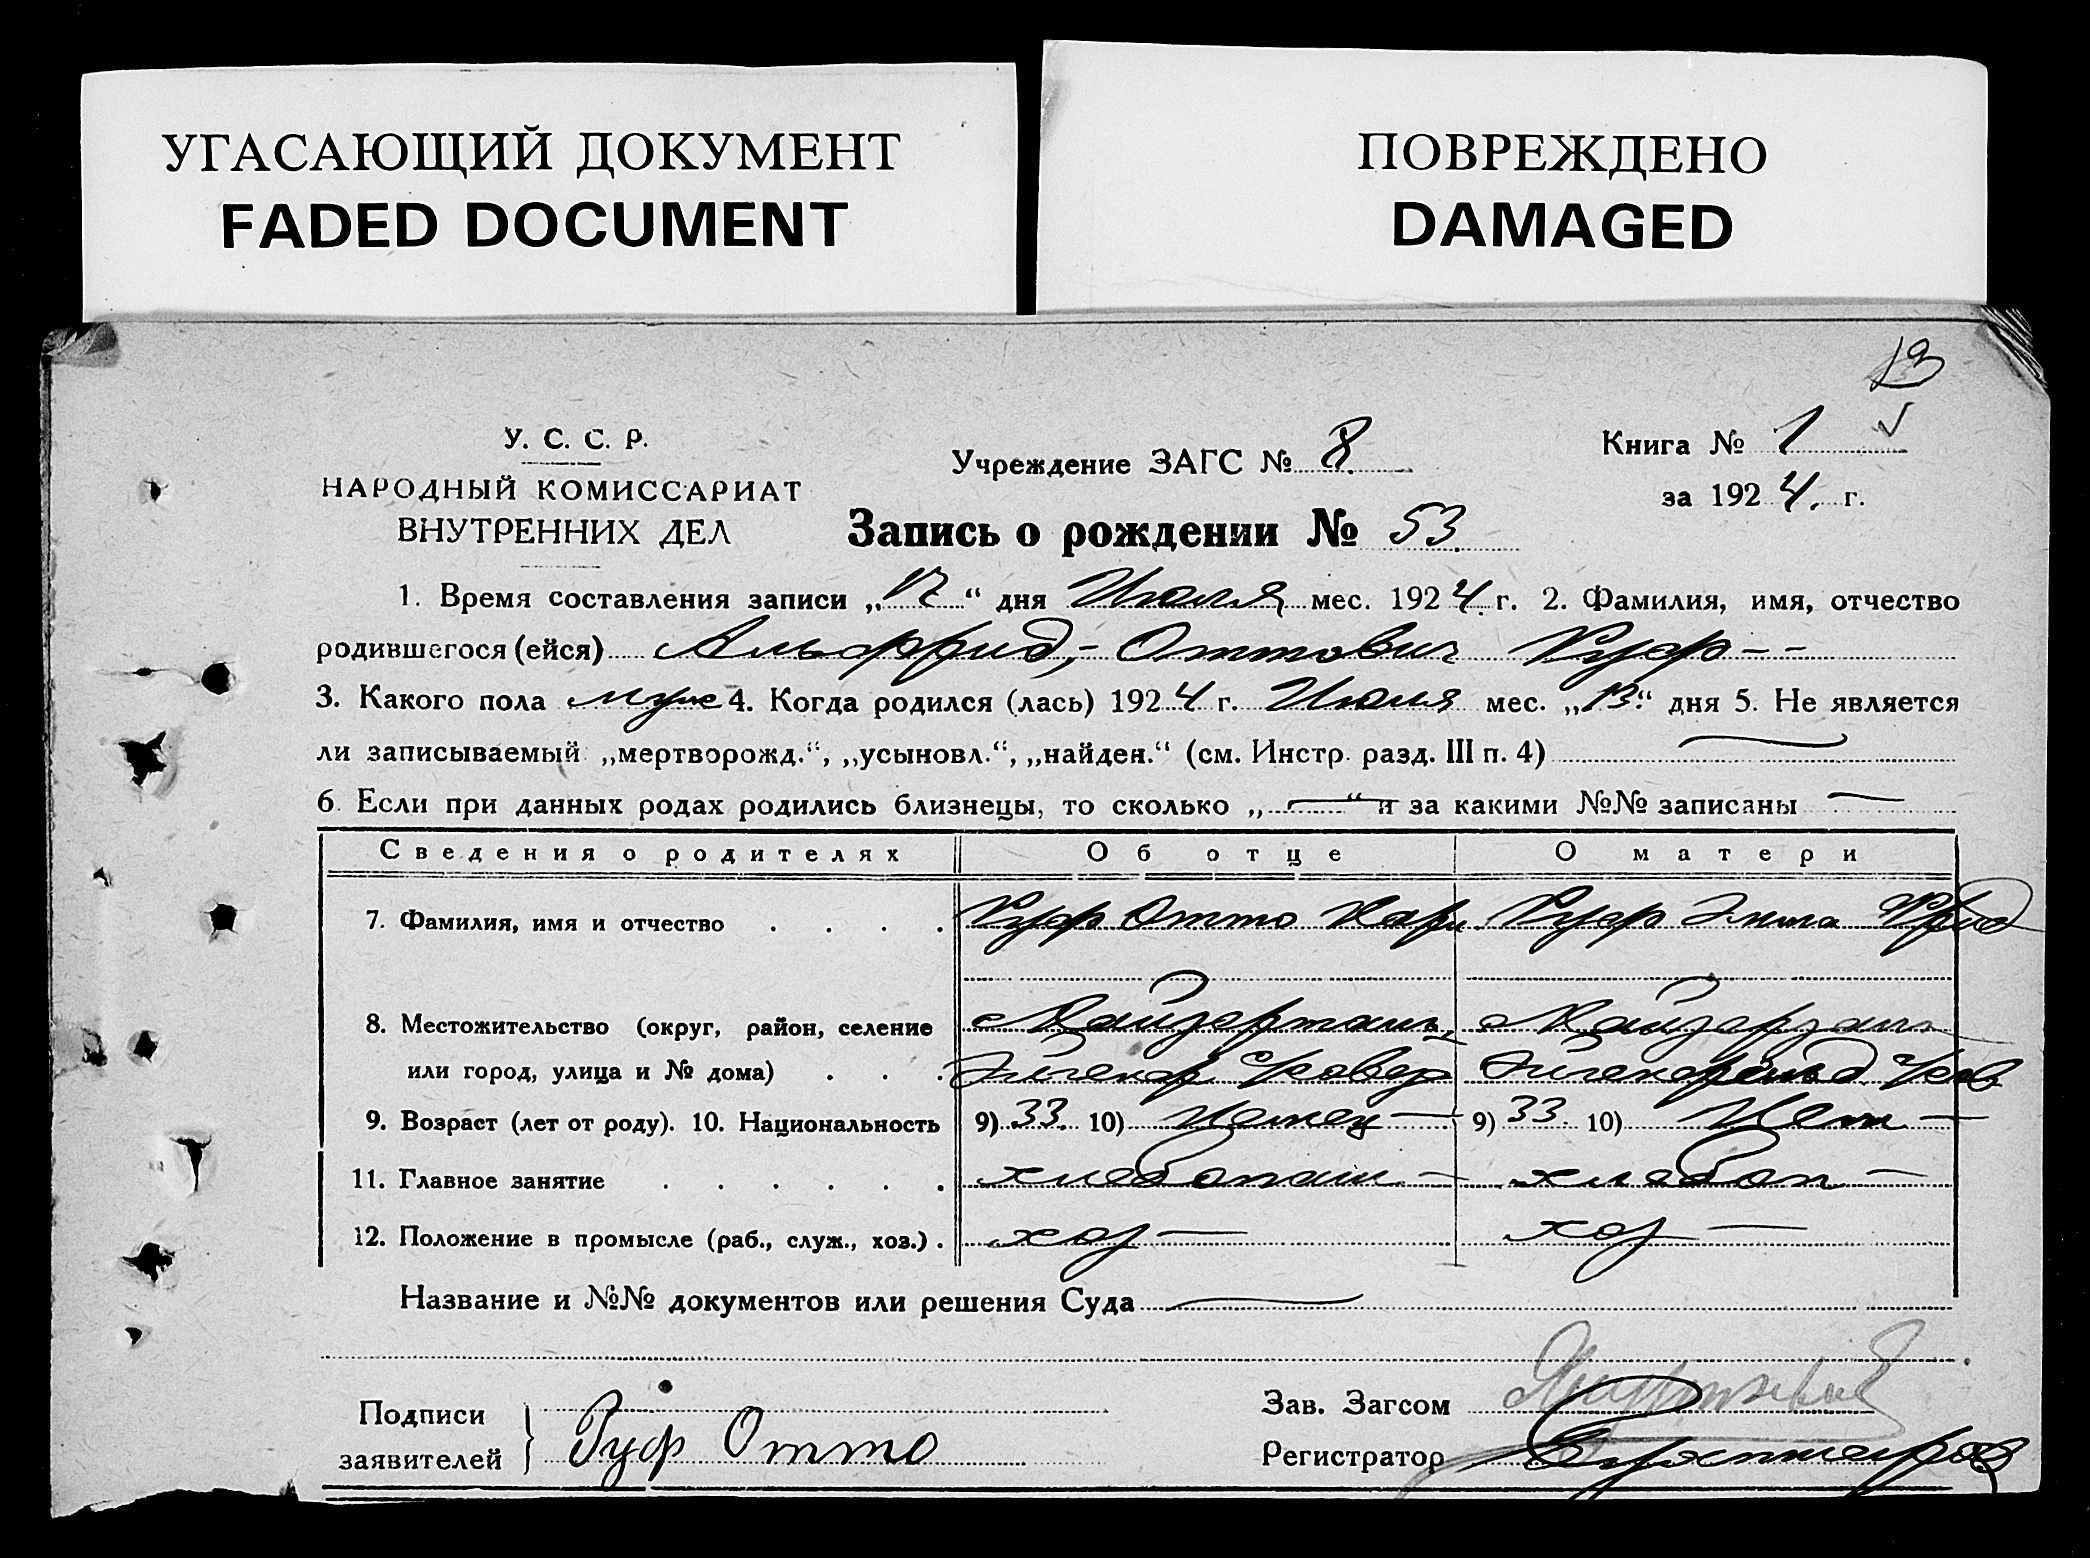 УГАСАЮЩИЙ ДОКУМЕНТ
FADED DOCUMENT
ПОВРЕЖДЕНО
DAMAGED
13
У. С. С. Р.
НАРОДНЫЙ КОМИССАРИАТ
ВНУТРЕННИХ ДЕЛ
Учреждение ЗАГС № 8
Книга № 1
за 1924. г.
Запись о рождении № 53.
1. Время составления записи „17“ дня Июля мес. 1924. г. 2. Фамилия, имя, отчество
родившегося (ейся) Альфрид, - Оттович Руф - -
3. Какого пола муж 4. Когда родился (лась) 1924 г. Июля мес. „13.“ дня 5. Не является
ли записываемый „мертворожд.“, „усыновл.“, „найден.“ (см. Инстр. разд. III п. 4) —
6. Если при данных родах родились близнецы, то сколько „—“ и за какими №№ записаны —
Сведения о родителях Об отце О матери
7. Фамилия, имя и отчество . . . . Руф Отто Карл. Руф Фрид
8. Местожительство (округ, район, селение
или город, улица и № дома) . . .
9. Возраст (лет от роду). 10. Национальность 9) 33. 10) Немец — 9) 33. 10) Нем —
11. Главное занятие . . . . . . хлебопаш — хлебоп —
12. Положение в промысле (раб., служ., хоз.) . хоз — хоз —
Название и №№ документов или решения Суда —
Подписи
заявителей } Руф Отто
Зав. Загсом
Регистратор